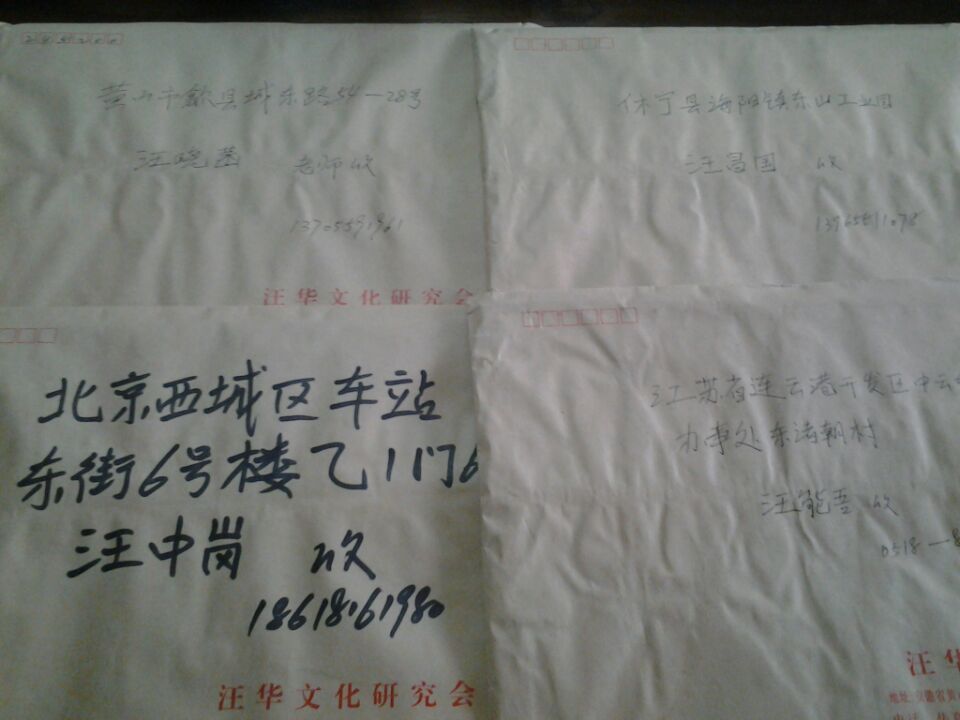 245200
黄山市歙县城东路54-28号
汪晓菡 老师 收
13705591961
汪华文化研究会
休宁县海阳镇东山工业园
汪昌国 收
北京西城区车站
东街6号楼乙1门6
汪中岗 收
18618161980
汪华文化研究会
江苏省连云港开发区中云
办事处东诸朝村
汪能吾 收
0518-8
汪华
地址:安徽省黄